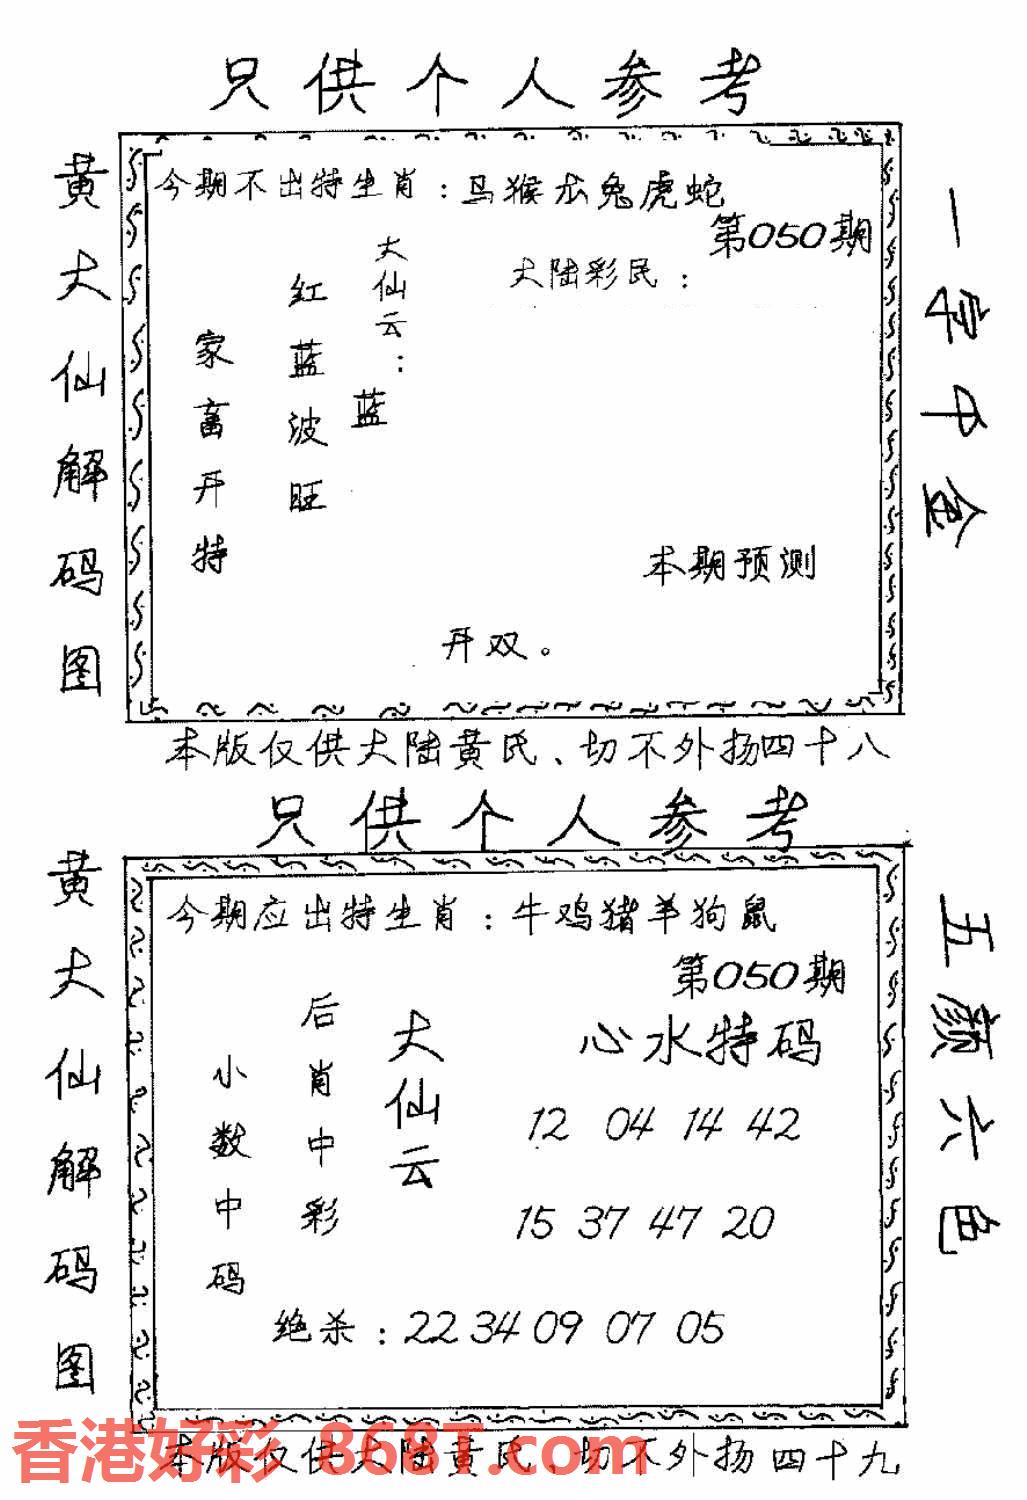 只供个人参考
黄大仙解码图
今期不出特生肖：马猴龙兔虎蛇
第050期
大陆彩民：
大仙云：
红蓝波旺
蓝
家畜开特
本期预测
开双。
一字千金
本版仅供大陆黄氏、切不外扬四十八
只供个人参考
黄大仙解码图
今期应出特生肖：牛鸡猪羊狗鼠
第050期
心水特码
大仙云
后肖中彩
小数中码
12 04 14 42
15 37 47 20
绝杀：22 34 09 07 05
五颜六色
香港好彩 868T.com
本版仅供大陆黄氏、切不外扬四十九